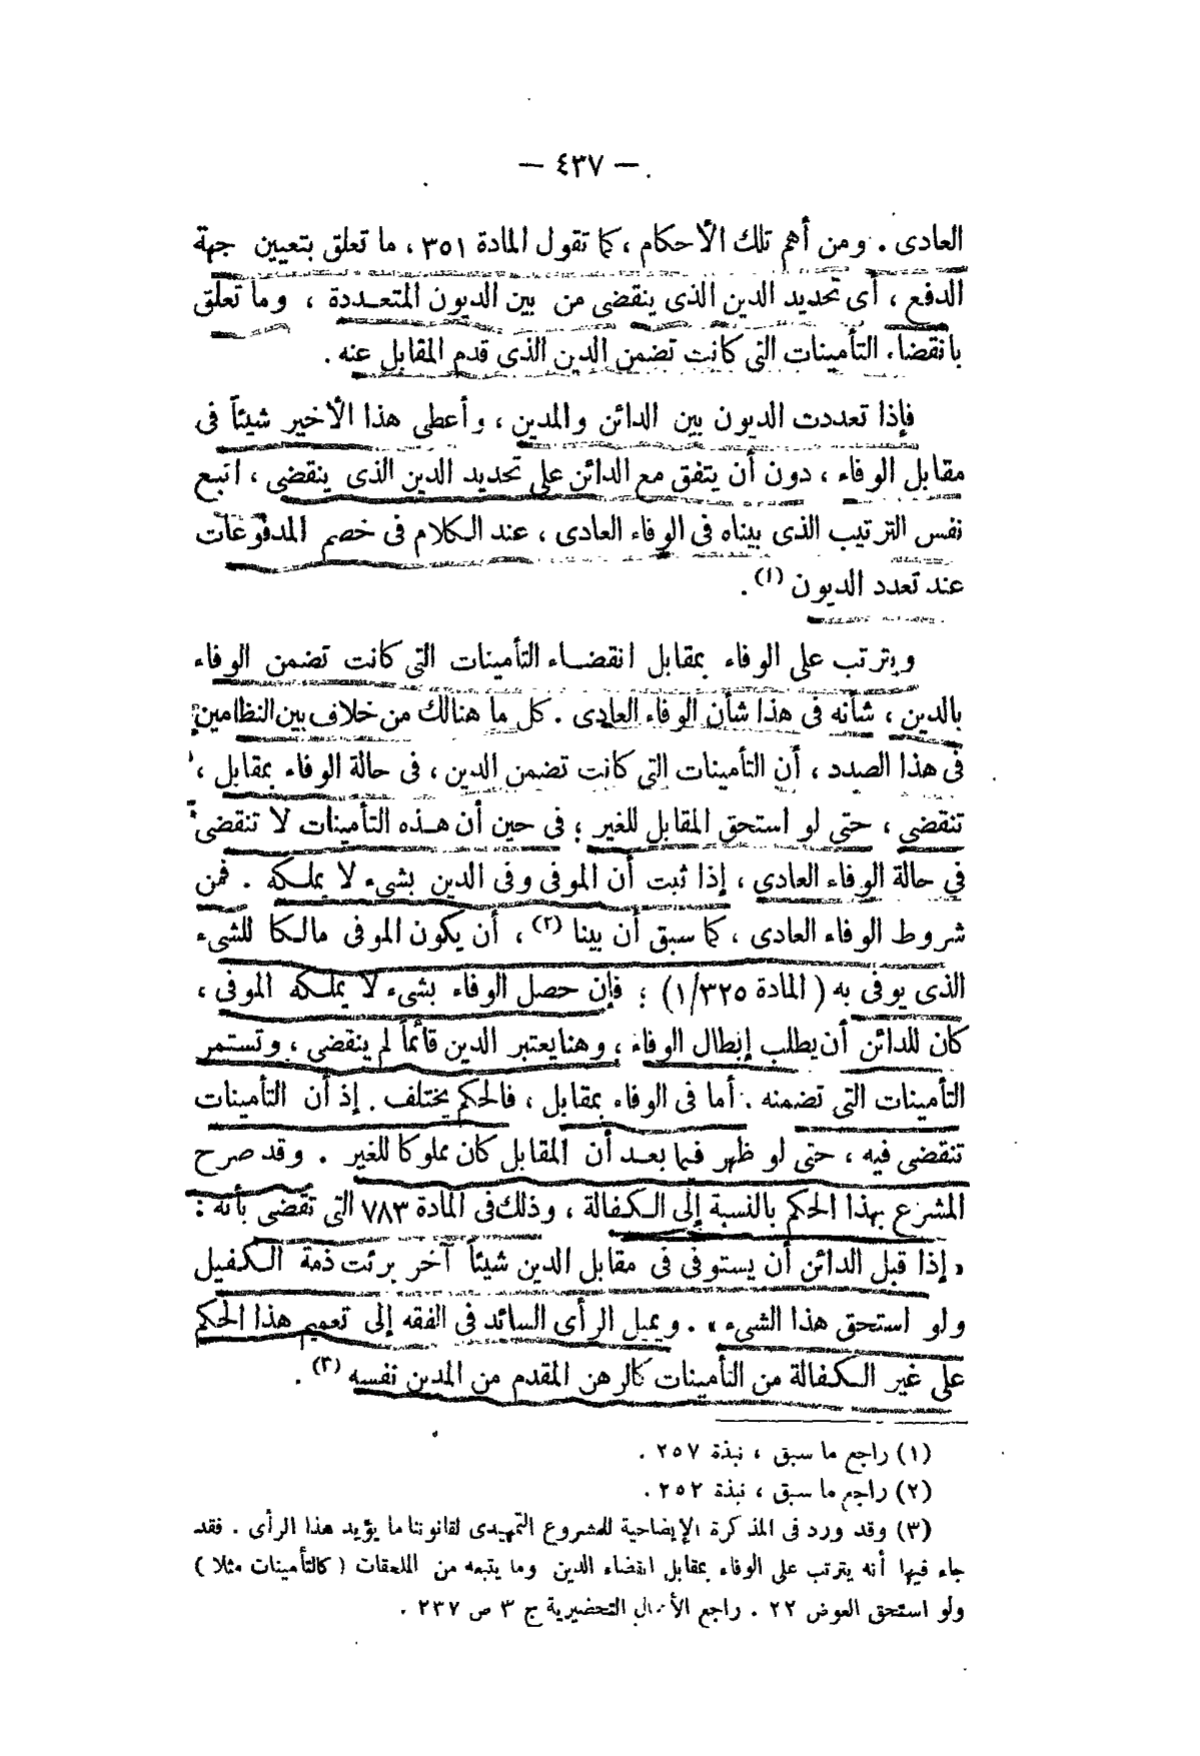 — ٤٣٧ —
العادى . ومن أهم تلك الأحكام ، كما تقول المادة ٣٥١ ، ما تعلق بتعيين جهة
الدفع ، أى تحديد الدين الذى ينقضى من بين الديون المتعددة ، وما تعلق
بانقضاء التأمينات التى كانت تضمن الدين الذى قدم المقابل عنه .
فإذا تعددت الديون بين الدائن والمدين ، وأعطى هذا الأخير شيئاً فى
مقابل الوفاء ، دون أن يتفق مع الدائن على تحديد الدين الذى ينقضى ، اتبع
نفس الترتيب الذى بيناه فى الوفاء العادى ، عند الكلام فى خصم المدفوعات
عند تعدد الديون (١) .
ويترتب على الوفاء بمقابل انقضاء التأمينات التى كانت تضمن الوفاء
بالدين ، شأنه فى هذا شأن الوفاء العادى . كل ما هنالك من خلاف بين النظامين
فى هذا الصدد ، أن التأمينات التى كانت تضمن الدين ، فى حالة الوفاء بمقابل ،
تنقضى ، حتى لو استحق المقابل للغير ؛ فى حين أن هذه التأمينات لا تنقضى
فى حالة الوفاء العادى ، إذا ثبت أن الموفى وفى الدين بشىء لا يملكه . فمن
شروط الوفاء العادى ، كما سبق أن بينا (٢) ، أن يكون الموفى مالكا للشىء
الذى يوفى به ( المادة ١/٣٢٥ ) ؛ فإن حصل الوفاء بشىء لا يملكه الموفى ،
كان للدائن أن يطلب إبطال الوفاء ، وهنا يعتبر الدين قائماً لم ينقضى ، وتستمر
التأمينات التى تضمنه . أما فى الوفاء بمقابل ، فالحكم يختلف . إذ أن التأمينات
تنقضى فيه ، حتى لو ظهر فيما بعد أن المقابل كان مملوكا للغير . وقد صرح
المشرع بهذا الحكم بالنسبة إلى الكفالة ، وذلك فى المادة ٧٨٣ التى تقضى بأنه :
« إذا قبل الدائن أن يستوفى فى مقابل الدين شيئاً آخر برئت ذمة الكفيل
ولو استحق هذا الشىء » . ويميل الرأى السائد فى الفقه إلى تعميم هذا الحكم
على غير الكفالة من التأمينات كالرهن المقدم من المدين نفسه (٣) .
(١) راجع ما سبق ، نبذة ٢٥٧ .
(٢) راجع ما سبق ، نبذة ٢٥٢ .
(٣) وقد ورد فى المذكرة الإيضاحية للمشروع التمهيدى لقانوننا ما يؤيد هذا الرأى . فقد
جاء فيها أنه يترتب على الوفاء بمقابل انقضاء الدين وما يتبعه من الملحقات ( كالتأمينات مثلا )
ولو استحق العوض ٢٢ . راجع الأعمال التحضيرية ج ٣ ص ٢٣٧ .